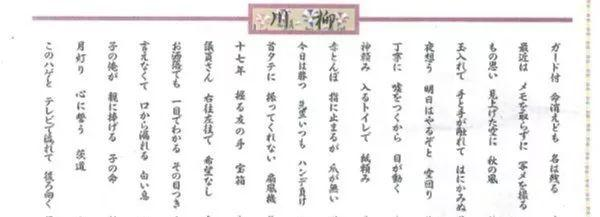 川柳
ガード付 命消えども 名は残る
最近は メモを取らずに 写メを撮る
もの思い 見上げた空に 秋の風
玉入れて 手と手が触れて はにかみぬ
夜想う 明日はやるぞと 空回り
丁寧に 嘘をつくから 目が動く
神頼み 入るトイレで 紙頼み
赤とんぼ 指に止まるが 爪が無い
今日は勝つ いつも ハンデ負け
首タテに 振ってくれない 扇風機
十七年 握る友の手 宝箱
議員さん 右往左往で 希望なし
お洒落でも 一目でわかる その目つき
言えなくて 口から漏れる 白い息
子の俺が 親に捧げる 子の命
月灯り 心に誓う 茨道
このハゲと テレビで流れて 後ろ向く